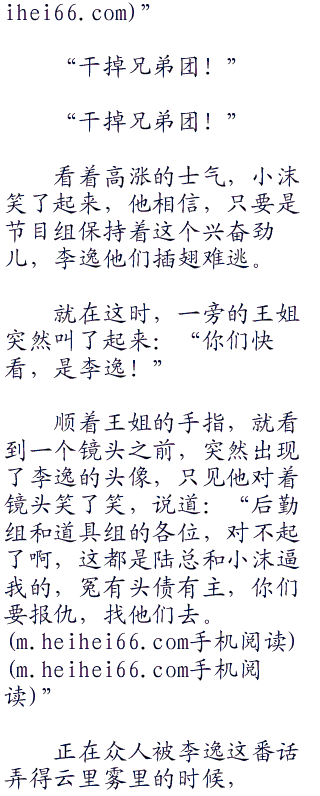 ihei66.com)”
“干掉兄弟团！”
“干掉兄弟团！”
看着高涨的士气，小沫
笑了起来，他相信，只要是
节目组保持着这个兴奋劲
儿，李逸他们插翅难逃。
就在这时，一旁的王姐
突然叫了起来：“你们快
看，是李逸！”
顺着王姐的手指，就看
到一个镜头之前，突然出现
了李逸的头像，只见他对着
镜头笑了笑，说道：“后勤
组和道具组的各位，对不起
了啊，这都是陆总和小沫逼
我的，冤有头债有主，你们
要报仇，找他们去。
(m.heihei66.com手机阅读)
(m.heihei66.com手机阅
读)”
正在众人被李逸这番话
弄得云里雾里的时候，